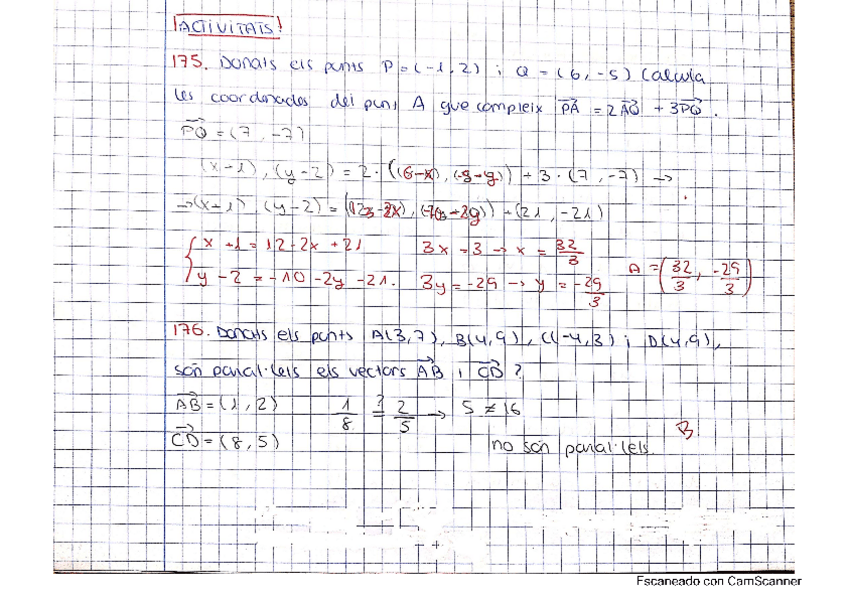 ACTIVITATS!
175. Donats els punts P=(-1,2) i Q=(6,-5) calcula
les coordenades del punt A que compleix PA = 2AQ + 3PQ.
PQ = (7, -7)
(x-1), (y-2) = 2·((6-x), (-5-y)) + 3·(7, -7) →
→(x+1), (y-2) = (12-2x), (-10-2y)) + (21, -21)
x +1 = 12-2x +21 3x = 3 → x = 32/3
y - 2 = -10 -2y -21. 3y = -29 → y = -29/3
A = (32/3, -29/3)
176. Donats els punts A(3,7), B(4,9), C(-4,3) i D(4,9),
són paral·lels els vectors AB i CD?
AB = (1, 2) 1/8 ?= 2/5 → 5 ≠ 16
CD = (8, 5)
B.
no són paral·lels.
Escaneado con CamScanner